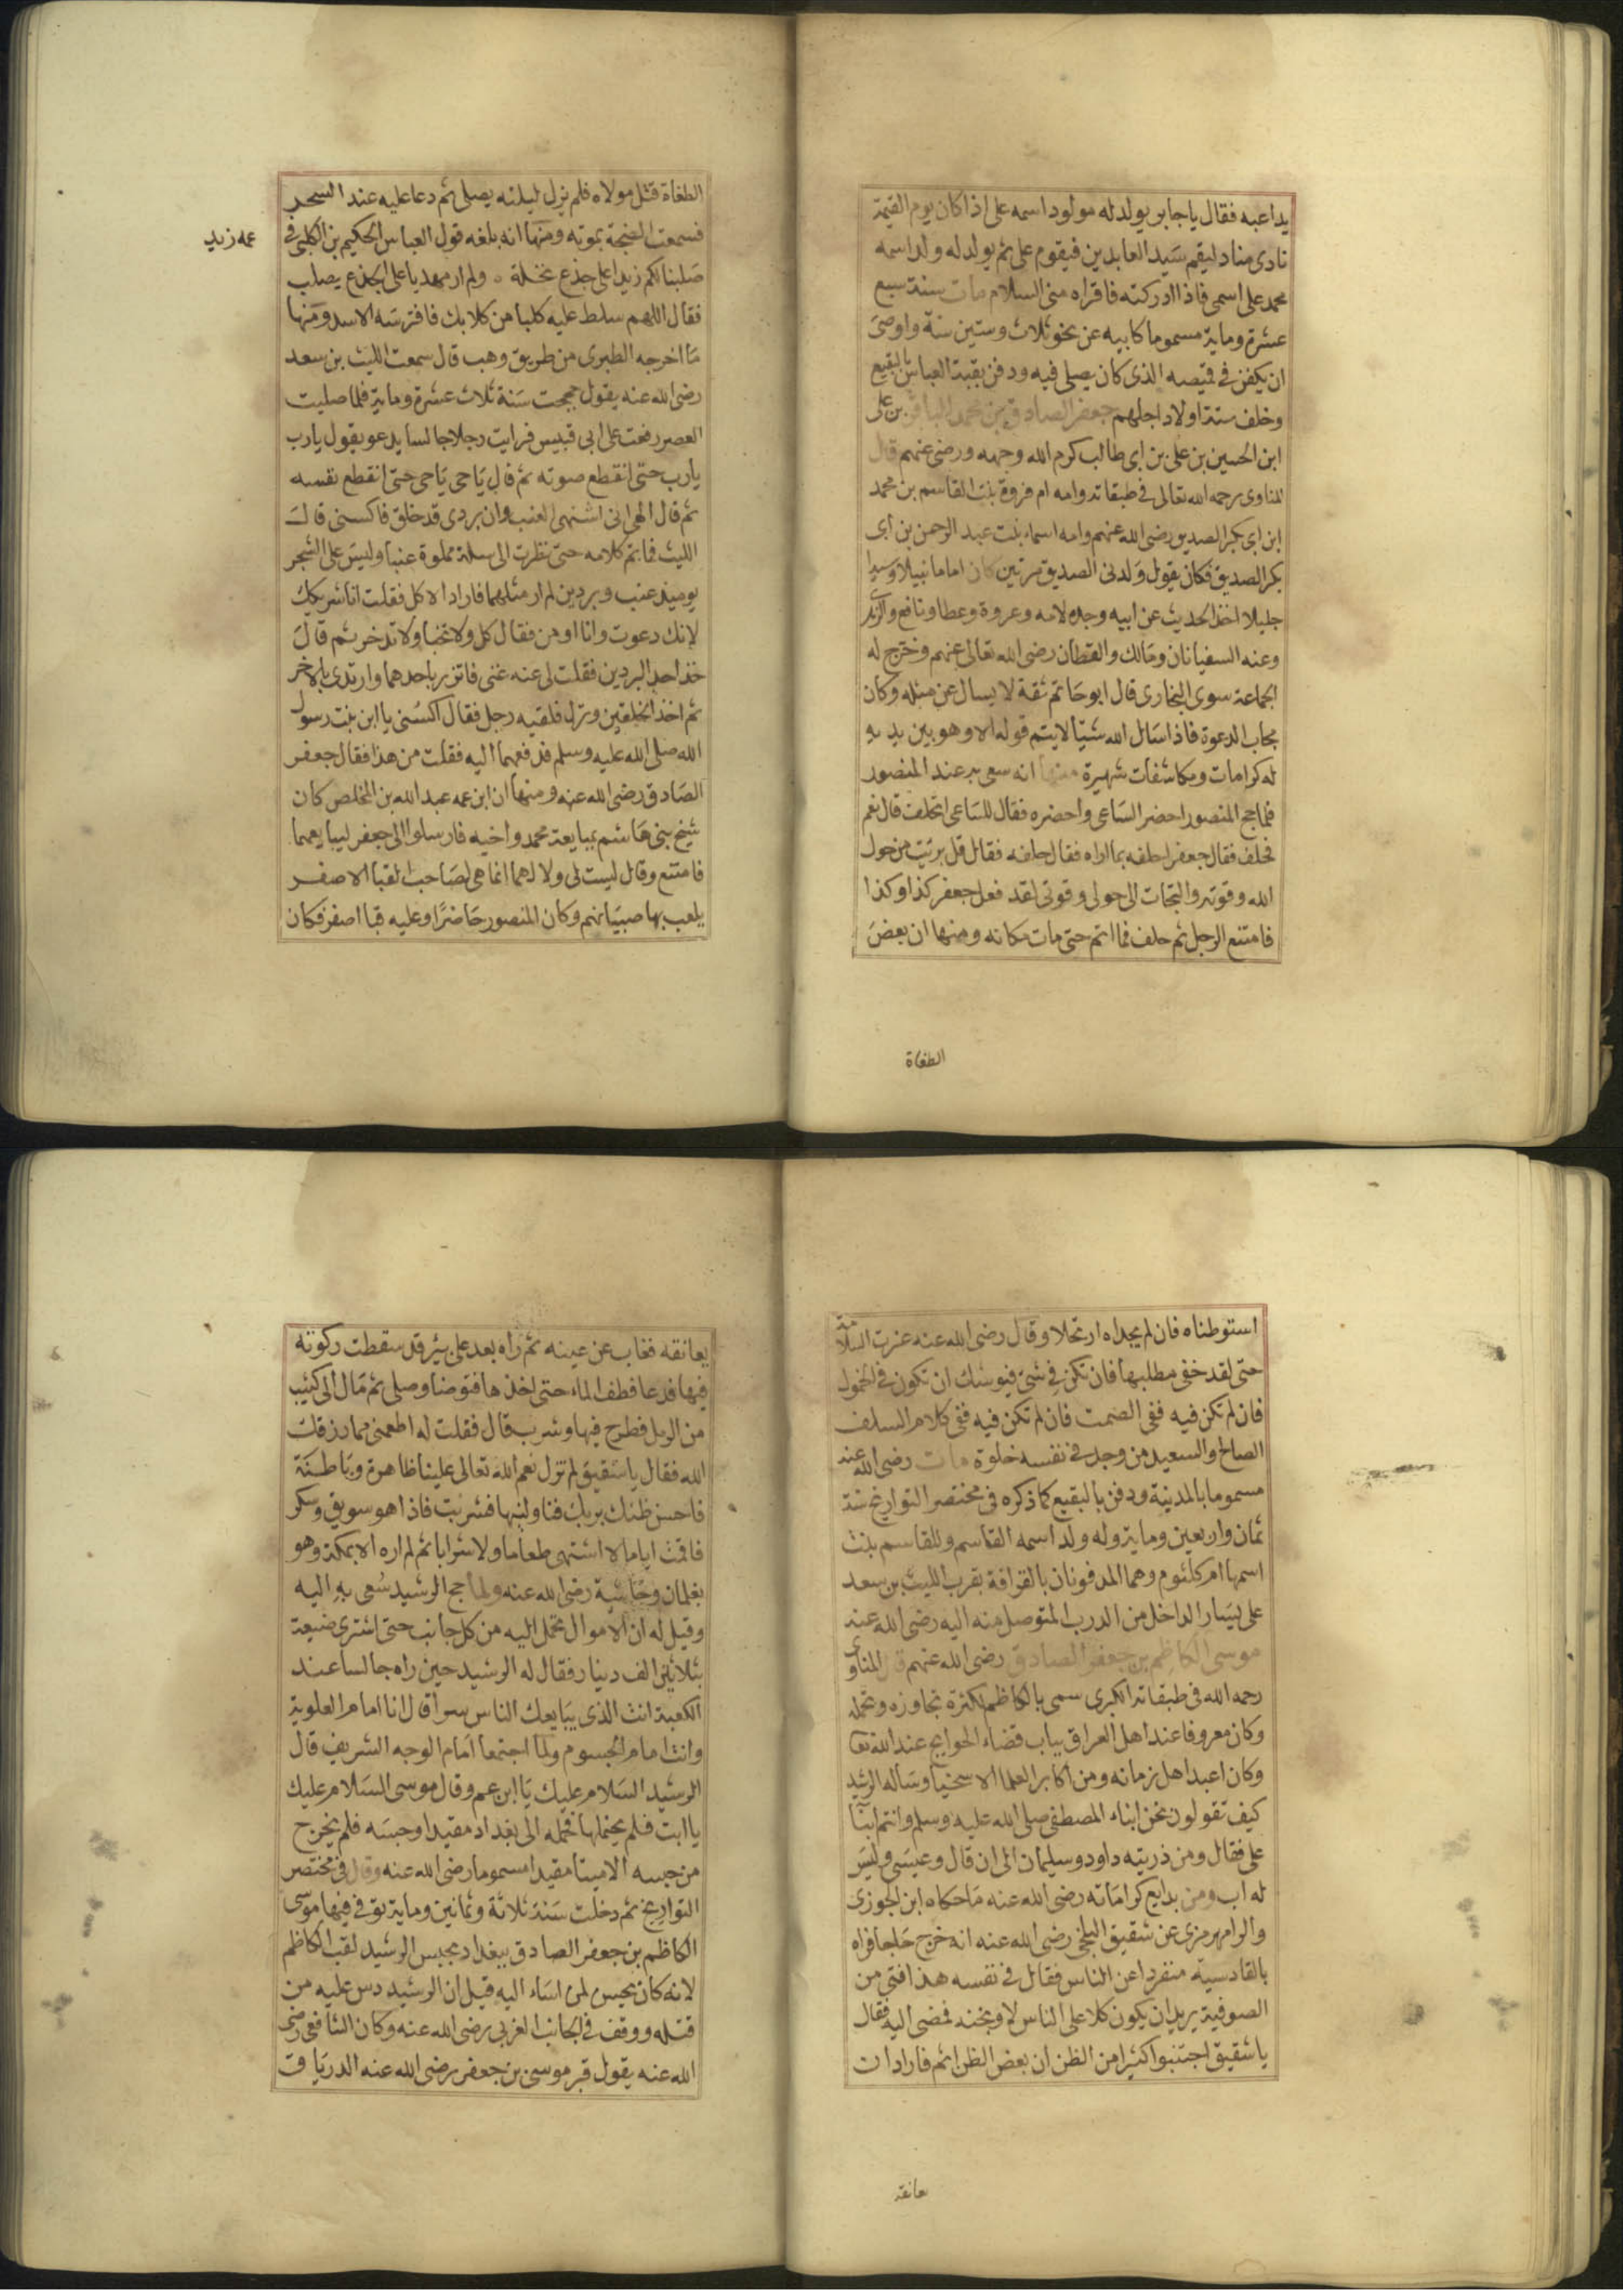 يداعبه فقال يا جابر يولد له مولود اسمه على اذا كان يوم القيمة
نادى مناد ليقم سيد العابدين فيقوم على ثم يولد له ولد اسمه
محمد على اسمى فاذا ادركته فاقراه منى السلام مات سنة سبع
عشرة وماية مسموما كابيه عن نحو ثلاث وستين سنة واوصى
ان يكفن فى قميصه الذى كان يصلى فيه ودفن بقبة العباس بالبقيع
وخلف ستة اولاد اجلهم جعفر الصادق بن محمد الباقر بن على
ابن الحسين بن على بن ابى طالب كرم الله وجهه ورضى عنهم قال
المناوى رحمه الله تعالى فى طبقاته وامه ام فروة بنت القاسم بن محمد
ابن ابى بكر الصديق رضى الله عنهم وامه اسماء بنت عبد الرحمن بن ابى
بكر الصديق فكان يقول ولدنى الصديق مرتين كان اماما نبيلا وسيدا
جليلا اخذ الحديث عن ابيه وجده لامه وعروة وعطا ونافع والزهرى
وعنه السفيانان ومالك والقطان رضى الله تعالى عنهم وخرج له
الجماعة سوى البخارى قال ابو حاتم ثقة لا يسال عن مثله وكان
مجاب الدعوة فاذا سال الله شيئا لا يتم قوله الا وهو بين يديه
له كرامات ومكاشفات شهيرة منها انه سعى به عند المنصور
فلما حج المنصور احضر الساعى واحضره فقال للساعى اتحلف قال نعم
فحلف فقال جعفر احلفه بما اراه فقال حلفه فقال قل برئت من حول
الله وقوته والتجات الى حولى وقوتى لقد فعل جعفر كذا وكذا
فامتنع الرجل ثم حلف فما اتم حتى مات مكانه ومنها ان بعض
الطغاة
الطغاة قتل مولاه فلم يزل ليلته يصلى ثم دعا عليه عند السحر
فسمعت الضجة بموته ومنها انه بلغه قول العباس الحكيم بن الكلبى فى
عمه زيد
صلبنا لكم زيدا على جذع نخلة ٥ ولم ار مهديا على الجذع يصلب
فقال اللهم سلط عليه كلبا من كلابك فافترسه الاسد ومنها
ما اخرجه الطبرى من طريق وهب قال سمعت الليث بن سعد
رضى الله عنه يقول حججت سنة ثلاث عشرة وماية فلما صليت
العصر رفعت على ابى قبيس فرايت رجلا جالسا يدعو يقول يا رب
يا رب حتى انقطع صوته ثم قال يا حى يا حى حتى انقطع نفسه
ثم قال الهى انى اشتهى العنب وان بردى قد خلق فاكسنى قال
الليث فما تم كلامه حتى نظرت الى سلة مملوة عنبا وليس على الشجر
يوميذ عنب وبردين لم ار مثلهما فاراد الاكل فقلت انا شريكك
لانك دعوت وانا اومن فقال كل ولا تخبا ولا تدخر ثم قال
خذ احد البردين فقلت لى عنه غنى فاتزر باحدهما وارتدى بالاخر
ثم اخذ الخلقين ونزل فلقيه رجل فقال اكسنى يا ابن بنت رسول
الله صلى الله عليه وسلم فدفعهما اليه فقلت من هذا فقال جعفر
الصادق رضى الله عنه ومنها ان ابن عمه عبد الله بن المخلص كان
شيخ بنى هاشم بمبايعة محمد واخيه فارسلوا الى جعفر ليبايعهما
فامتنع وقال ليست لى ولا لهما انما هى لصاحب القبا الاصفر
يلعب بها صبيانهم وكان المنصور حاضرا وعليه قبا اصفر فكان
استوطناه فان لم يجداه ارتحلا وقال رضى الله عنه عزت السلامة
حتى لقد خفى مطلبها فان تكن فى شئ فيوشك ان تكون فى الخمول
فان لم تكن فيه ففى الصمت فان لم تكن فيه ففى كلام السلف
الصالح والسعيد من وجد فى نفسه خلوة مات رضى الله عنه
مسموما بالمدينة ودفن بالبقيع كما ذكره فى مختصر التواريخ سنة
ثمان واربعين وماية وله ولد اسمه القاسم وللقاسم بنت
اسمها ام كلثوم وهما المدفونان بالقرافة بقرب الليث بن سعد
على يسار الداخل من الدرب المتوصل منه اليه رضى الله عنه
موسى الكاظم بن جعفر الصادق رضى الله عنهم قال المناوى
رحمه الله فى طبقاته الكبرى سمى بالكاظم لكثرة تجاوزه وتحمله
وكان معروفا عند اهل العراق بباب قضاء الحوايج عند الله تعا
وكان اعبد اهل زمانه ومن اكابر العلما الاسخيا وساله الرشيد
كيف تقولون نحن ابناء المصطفى صلى الله عليه وسلم وانتم ابنا
على فقال ومن ذريته داود وسليمان الى ان قال وعيسى وليس
له اب ومن بدايع كراماته رضى الله عنه ما حكاه ابن الجوزى
والرامهرمزى عن شقيق البلخى رضى الله عنه انه خرج حاجا فراه
بالقادسية منفردا عن الناس فقال فى نفسه هذا فتى من
الصوفية يريد ان يكون كلا على الناس لاوبخنه فمضى اليه فقال
يا شقيق اجتنبوا كثيرا من الظن ان بعض الظن اثم فاراد ان
عانقه
يعانقه فغاب عن عينه ثم راه بعد على بئر قد سقطت ركوته
فيها فدعا فطف الماء حتى اخذها فتوضا وصلى ثم مال الى كثيب
من الرمل فطرح فيها وشرب قال فقلت له اطعمنى مما رزقك
الله فقال يا شقيق لم تزل نعم الله تعالى علينا ظاهرة وباطنة
فاحسن ظنك بربك فناولنيها فشربت فاذا هو سويق وسكر
فاقمت اياما لا اشتهى طعاما ولا شرابا ثم لم اره الا بمكة وهو
بغلمان وحاشية رضى الله عنه ولما حج الرشيد سعى به اليه
وقيل له ان الاموال تحمل اليه من كل جانب حتى اشترى ضيعة
بثلاثين الف دينار فقال له الرشيد حين راه جالسا عند
الكعبة انت الذى يبايعك الناس سرا قال انا امام العلوية
وانت امام الجسوم ولما اجتمعا امام الوجه الشريف قال
الرشيد السلام عليك يا ابن عم وقال موسى السلام عليك
يا ابت فلم يحتملها فحمله الى بغداد مقيدا وحبسه فلم يخرج
من حبسه الا ميتا مقيدا مسموما رضى الله عنه وقال فى مختصر
التواريخ ثم دخلت سنة ثلاثة وثمانين وماية توفى فيها موسى
الكاظم بن جعفر الصادق ببغداد بحبس الرشيد لقب الكاظم
لانه كان يحبس لمن اساء اليه قيل ان الرشيد دس عليه من
قتله ووقف فى الجانب الغربى رضى الله عنه وكان الشافعى رضى
الله عنه يقول قبر موسى بن جعفر رضى الله عنه الدرياق